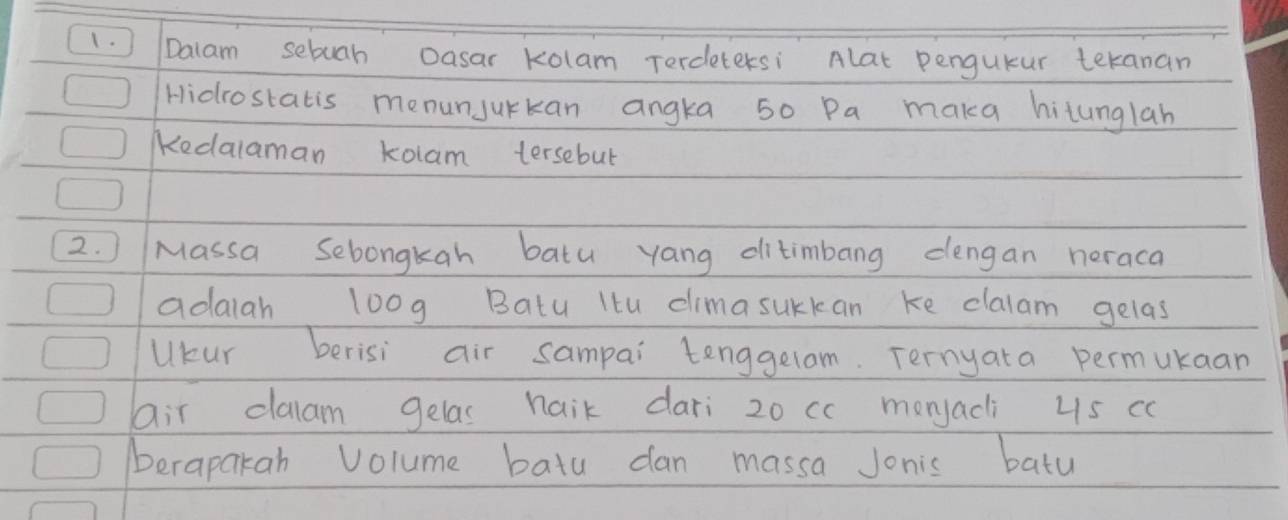 1. Dalam sebuah Dasar Kolam Terdeteksi Alat pengukur tekanan
Hidrostatis menunjukkan angka 50 Pa maka hitunglah
Kedalaman kolam tersebut
2. Massa Sebongkah batu yang ditimbang dengan neraca
adalah 100g Batu Itu dimasukkan ke dalam gelas
Ukur berisi air sampai tenggelam. Ternyata permukaan
air dalam gelas naik dari 20 cc menjadi 45 cc
berapakah Volume batu dan massa Jenis batu